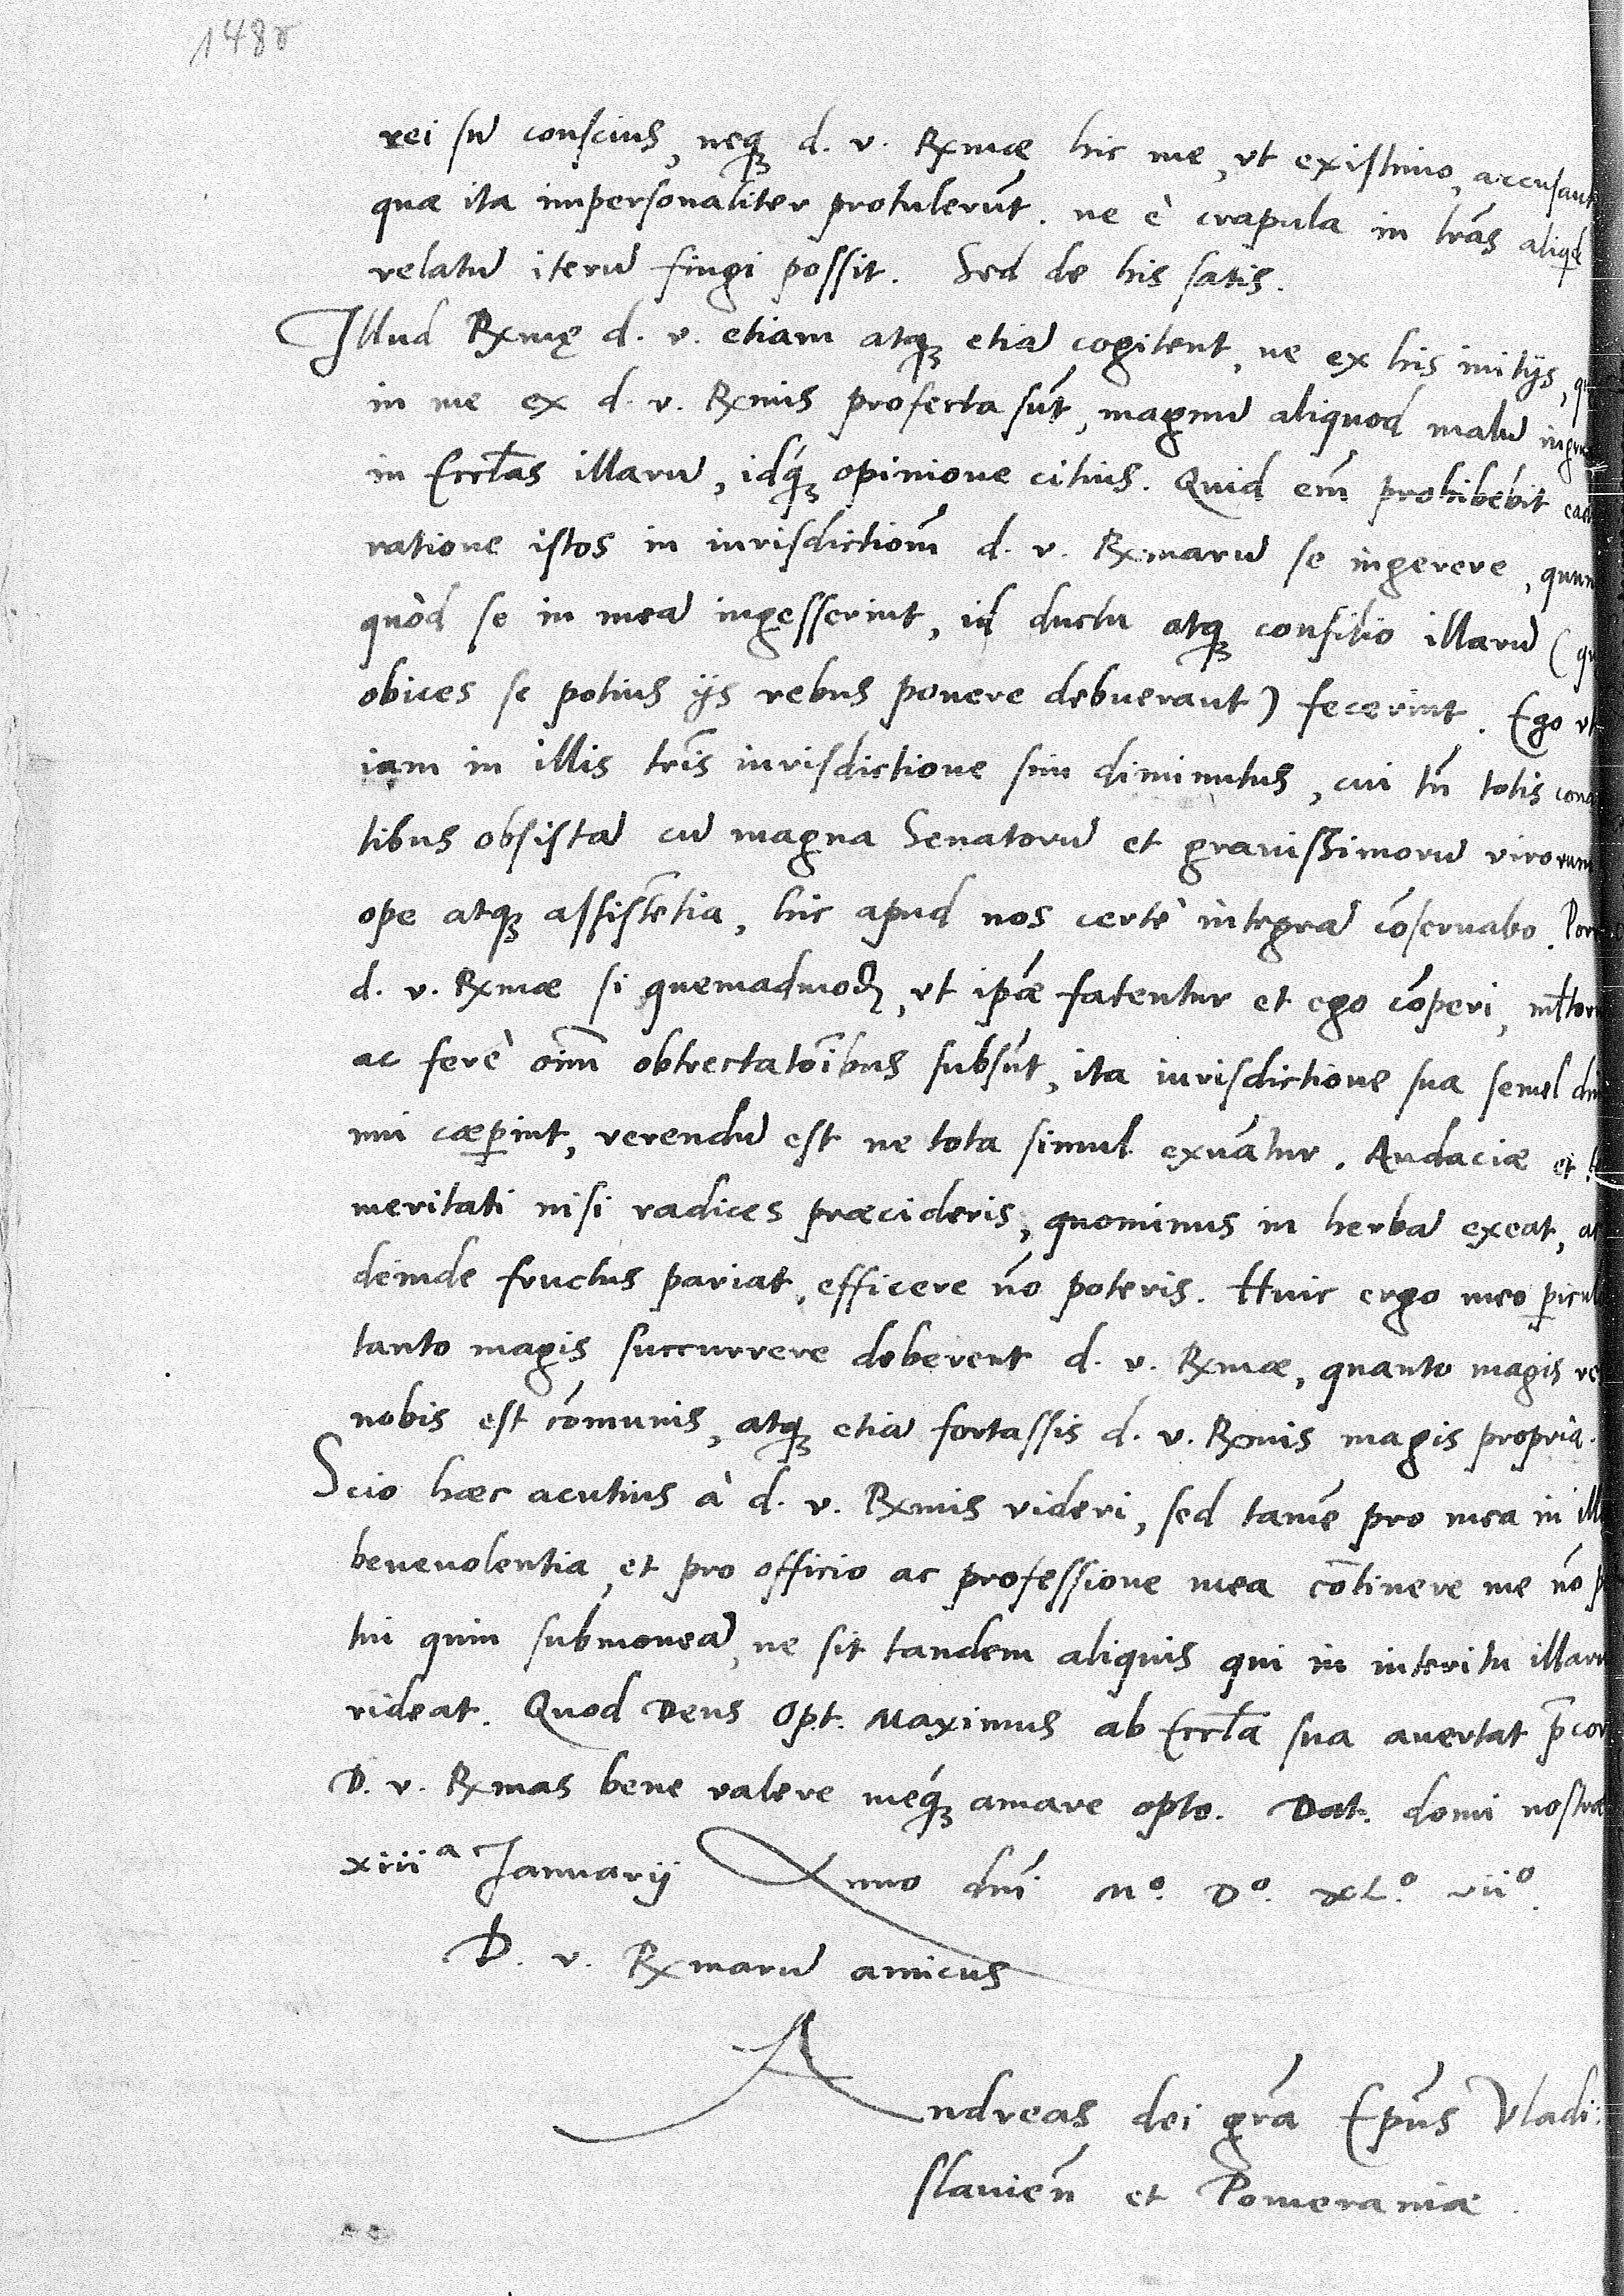 148r
rei sū conscius, neq₃ d. v. Rxmae hic me, vt existimo, accusant
quae ita impersonaliter protulerūt. ne è crapula in lrās aliqd
relatū iterū fingi possit. Sed de his satis.
Illud Rxmę d. v. etiam atq₃ etiā cogitent, ne ex his initijs,
in me ex d. v. Rxmis profecta sūt, magnū aliquod malū
in Eccl̄as illarū, idq́₃ opinione citius. Quid em̄ prohibebit
ratione istos in iurisdictionē d. v. Rxmarū se ingerere,
quòd se in meā ingesserint, id ductu atq₃ consilio illarū (
obices se potius ijs rebus ponere debuerant) fecerint. Ego vt
iam in illis tr̄is iurisdictione sim diminutus, cui tn̄ totis cona
tibus obsistā cū magna Senatorū et grauissimorū virorum
ope atq₃ assistētia, hic apud nos certè integrā cōseruabo.
d. v. Rxmae si quemadmodū, vt ip̄ae fatentur et ego cōperi,
ac ferè oim̄ obtrectatōibus subsūt, ita iurisdictione sua semel
nui caep̱int, verendū est ne tota simul exuātur. Audaciae et
meritati nisi radices praecideris, quominus in herbā exeat,
deinde fructus pariat, efficere nō poteris. Huic ergo meo p̱iculo
tanto magis succurrere deberent d. v. Rxmae, quanto magis
nobis est cōmunis, atq₃ etiā fortassis d. v. Rxmis magis propria.
Scio haec acutius à d. v. Rxmis videri, sed tamē pro mea in
beneuolentia, et pro officio ac professione mea cōtinere me nō
tui quin submoneā, ne sit tandem aliquis qui in interitu illarū
rideat. Quod Deus Opt. Maximus ab Eccl̄a sua auertat p̄cor
D. v. Rxmas bene valere meq́₃ amare opto. Dat. domi nostrae
xiiiᵃ Januarij Anno dn̄i Mº. Dº. XLº. viiº.
D. v. Rxmarū amicus
Andreas dei grā Ep̄us Vladi:
slauień et Pomeraniae.